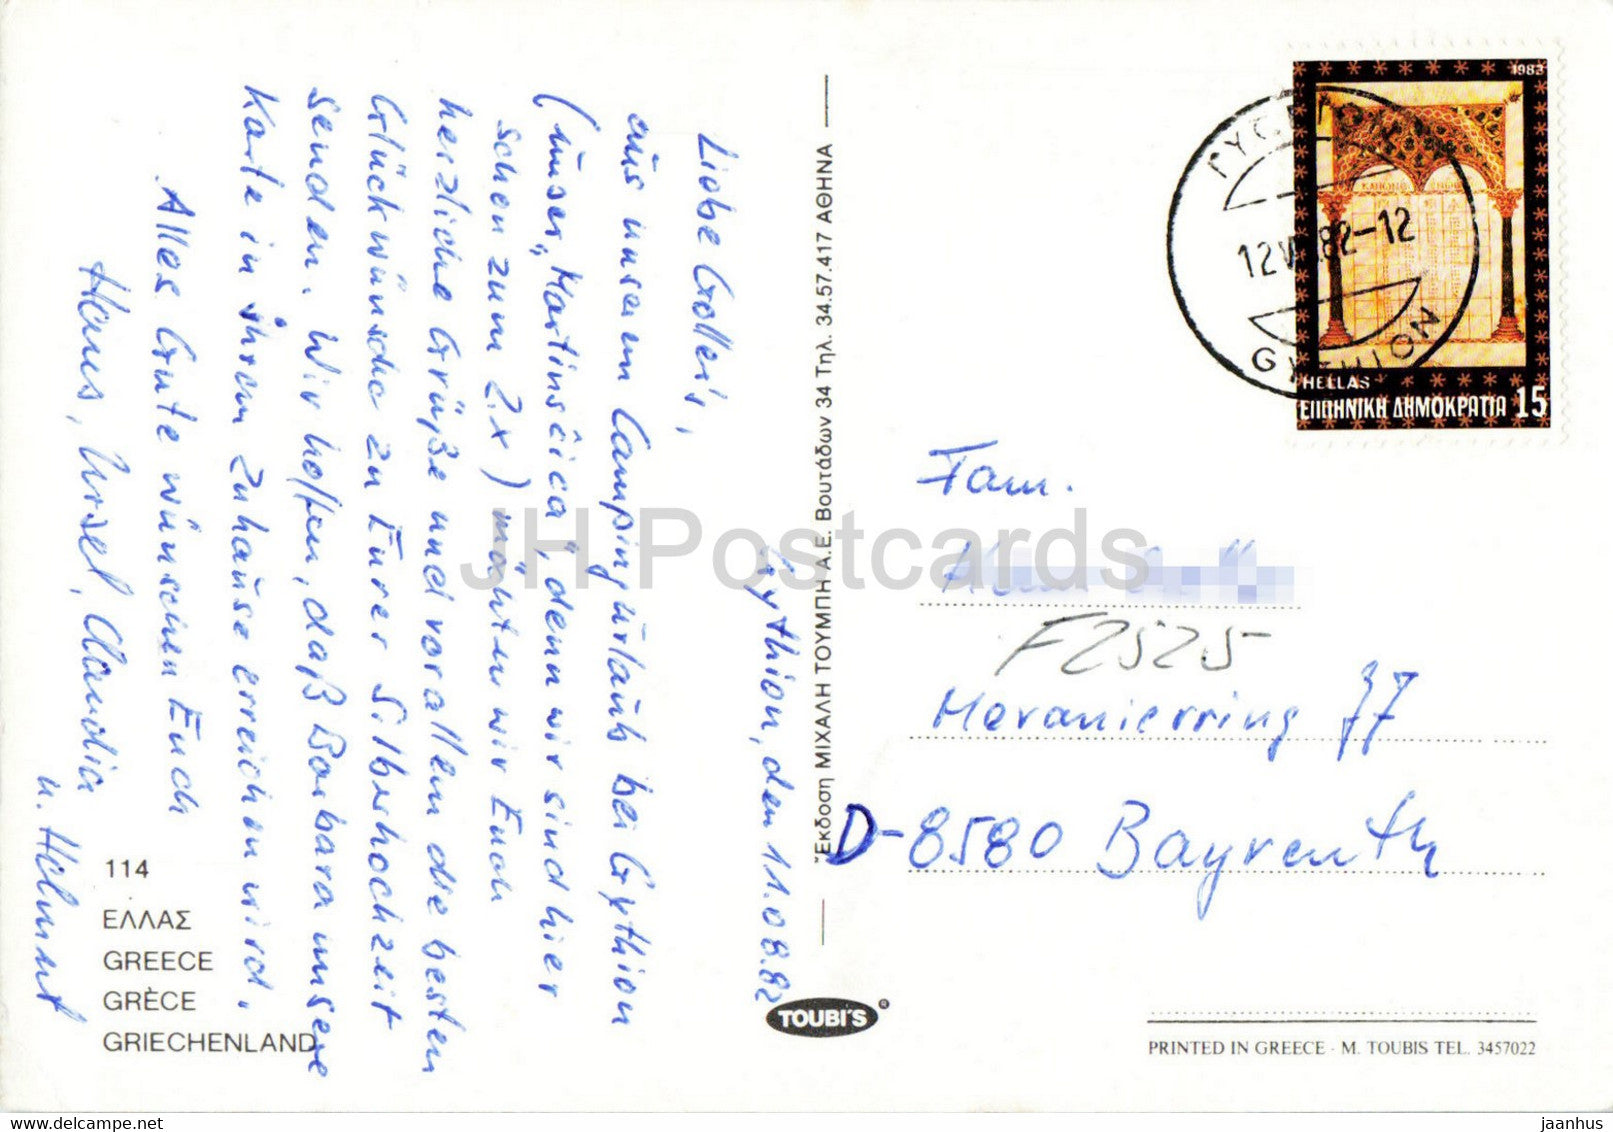 Gythion, den 11.08.82
Liebe Goller's,
aus unserem Campingurlaub bei Gythion
(unser „Martinsčica", denn wir sind hier
schon zum 2.x) möchten wir Euch
herzliche Grüße und vor allem die besten
Glückwünsche zu Eurer Silberhochzeit
senden. Wir hoffen, daß Barbara unsere
Karte in ihrem Zuhause erreichen wird.
Alles Gute wünschen Euch
Hans, Ursel, Claudia
u. Helmut
114
ΕΛΛΑΣ
GREECE
GRÈCE
GRIECHENLAND
Ἔκδοση ΜΙΧΑΛΗ ΤΟΥΜΠΗ Α.Ε. Βουτάδων 34 Τηλ. 34.57.417 ΑΘΗΝΑ
TOUBI'S ®
1983
12 82-12
HELLAS
ΕΛΛΗΝΙΚΗ ΔΗΜΟΚΡΑΤΙΑ 15
Fam.
F2525
Meranierring 77
D-8580 Bayreuth
PRINTED IN GREECE - M. TOUBIS TEL. 3457022
JH Postcards
www.delcampe.net
jaanhus